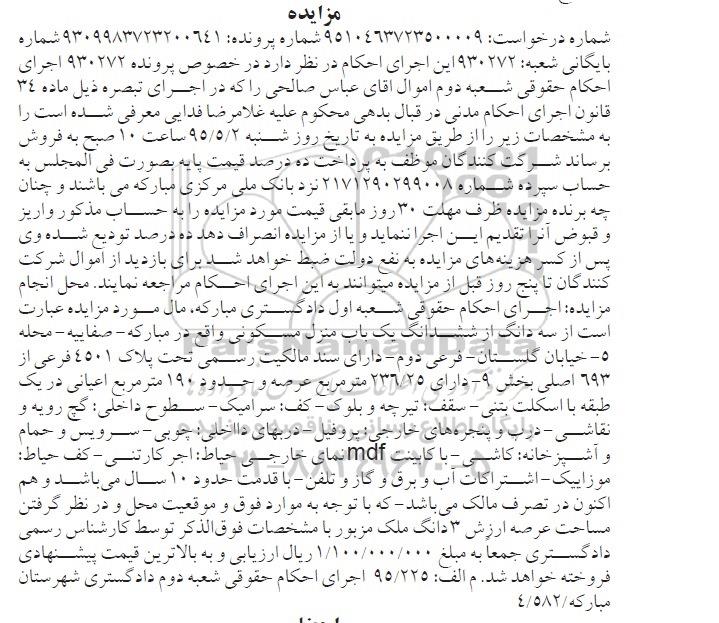 مزایده
شماره درخواست: ۹۵۱۰۴۶۳۷۲۳۵۰۰۰۰۹ شماره پرونده: ۹۳۰۹۹۸۳۷۲۳۲۰۰۶۴۱ شماره
بایگانی شعبه: ۹۳۰۲۷۲ این اجرای احکام در نظر دارد در خصوص پرونده ۹۳۰۲۷۲ اجرای
احکام حقوقی شعبه دوم اموال اقای عباس صالحی را که در اجرای تبصره ذیل ماده ۳۴
قانون اجرای احکام مدنی در قبال بدهی محکوم علیه غلامرضا فدایی معرفی شده است را
به مشخصات زیر را از طریق مزایده به تاریخ روز شنبه ۹۵/۵/۲ ساعت ۱۰ صبح به فروش
برساند شرکت کنندگان موظف به پرداخت ده درصد قیمت پایه بصورت فی المجلس به
حساب سپرده شماره ۲۱۷۱۲۹۰۲۹۹۰۰۸ نزد بانک ملی مرکزی مبارکه می باشند و چنان
چه برنده مزایده ظرف مهلت ۳۰ روز مابقی قیمت مورد مزایده را به حساب مذکور واریز
و قبوض آنرا تقدیم این اجرا ننماید و یا از مزایده انصراف دهد ده درصد تودیع شده وی
پس از کسر هزینه های مزایده به نفع دولت ضبط خواهد شد برای بازدید از اموال شرکت
کنندگان تا پنج روز قبل از مزایده میتوانند به این اجرای احکام مراجعه نمایند. محل انجام
مزایده: اجرای احکام حقوقی شعبه اول دادگستری مبارکه، مال مورد مزایده عبارت
است از سه دانگ از ششدانگ یک باب منزل مسکونی واقع در مبارکه- صفاییه- محله
۵- خیابان گلستان- فرعی دوم- دارای سند مالکیت رسمی تحت پلاک ۴۵۰۱ فرعی از
۶۹۳ اصلی بخش ۹- دارای ۲۳۶/۲۵ مترمربع عرصه و حدود ۱۹۰ مترمربع اعیانی در یک
طبقه با اسکلت بتنی- سقف: تیرچه و بلوک- کف: سرامیک- سطوح داخلی: گچ رویه و
نقاشی- درب و پنجره های خارجی: پروفیل- دربهای داخلی: چوبی- سرویس و حمام
و آشپزخانه: کاشی- با کابینت mdf نمای خارجی حیاط: اجر کارتنی- کف حیاط:
موزاییک- اشتراکات آب و برق و گاز و تلفن- با قدمت حدود ۱۰ سال می‌باشد و هم
اکنون در تصرف مالک می‌باشد- که با توجه به موارد فوق و موقعیت محل و در نظر گرفتن
مساحت عرصه ارزش ۳دانگ ملک مزبور با مشخصات فوق‌الذکر توسط کارشناس رسمی
دادگستری جمعاً به مبلغ ۱/۱۰۰/۰۰۰/۰۰۰ ریال ارزیابی و به بالاترین قیمت پیشنهادی
فروخته خواهد شد. م الف: ۹۵/۲۲۵ اجرای احکام حقوقی شعبه دوم دادگستری شهرستان
مبارکه/۴/۵۸۲
ParsNamadData
۰۲۱-۸۸۳۴۹۶۷۰-۵